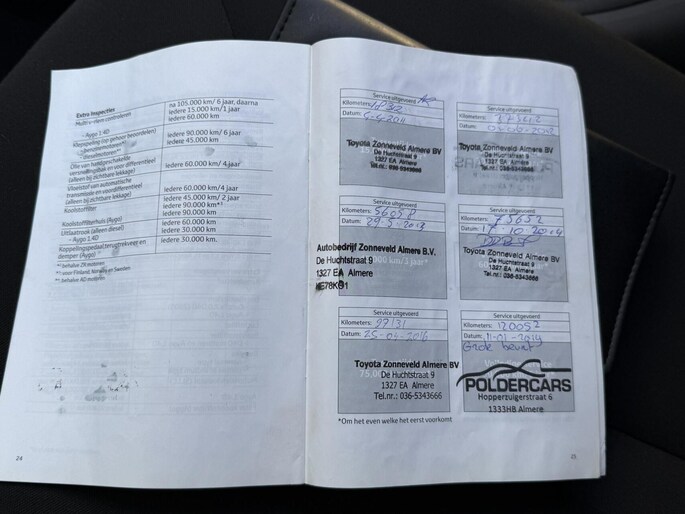 Extra Inspecties
na 105.000 km/ 6 jaar, daarna
iedere 15.000 km/1 jaar
Multi-v-riem controleren
iedere 60.000 km
- Aygo 1.4D
Klepspeling (op gehoor beoordelen)
iedere 90.000 km/ 6 jaar
iedere 45.000 km
Olie van handgeschakelde
versnellingsbak en voor differentieel
(alleen bij zichtbare lekkage)
iedere 60.000 km/ 4 jaar
Vloeistof van automatische
transmissie en voordifferentieel
(alleen bij zichtbare lekkage)
iedere 60.000 km/4 jaar
Koolstoffilter
iedere 45.000 km/ 2 jaar
iedere 90.000 km*³
iedere 90.000 km
Koolstoffilterhuis (Aygo)
iedere 60.000 km
Uitlaatrook (alleen diesel)
iedere 30.000 km
- Aygo 1.4D
Koppelingspedaal,terugtrekveer en
demper (Aygo)
iedere 30.000 km.
24
Service uitgevoerd
Kilometers:
Datum:
Toyota Zonneveld Almere BV
De Huchtstraat 9
1327 EA Almere
Tel.nr.: 036-5343666
Service uitgevoerd
Kilometers:
Datum:
Toyota Zonneveld Almere BV
De Huchtstraat 9
1327 EA Almere
Tel.nr.: 036-5343666
Service uitgevoerd
Kilometers: 56058
Datum: 29-5-2013
Autobedrijf Zonneveld Almere B.V.
De Huchtstraat 9
1327 EA Almere
Service uitgevoerd
Kilometers: 75652
Datum: 10 2014
Toyota Zonneveld Almere BV
De Huchtstraat 9
1327 EA Almere
Tel.nr.: 036-5343666
Service uitgevoerd
Kilometers: 97131
Datum: 2016
Toyota Zonneveld Almere BV
De Huchtstraat 9
1327 EA Almere
Tel.nr.: 036-5343666
Service uitgevoerd
Kilometers: 120052
Datum: 11-01-2019
Grote beurt
POLDERCARS
Hopperzuigerstraat 6
1333HB Almere
*Om het even welke het eerst voorkomt
25